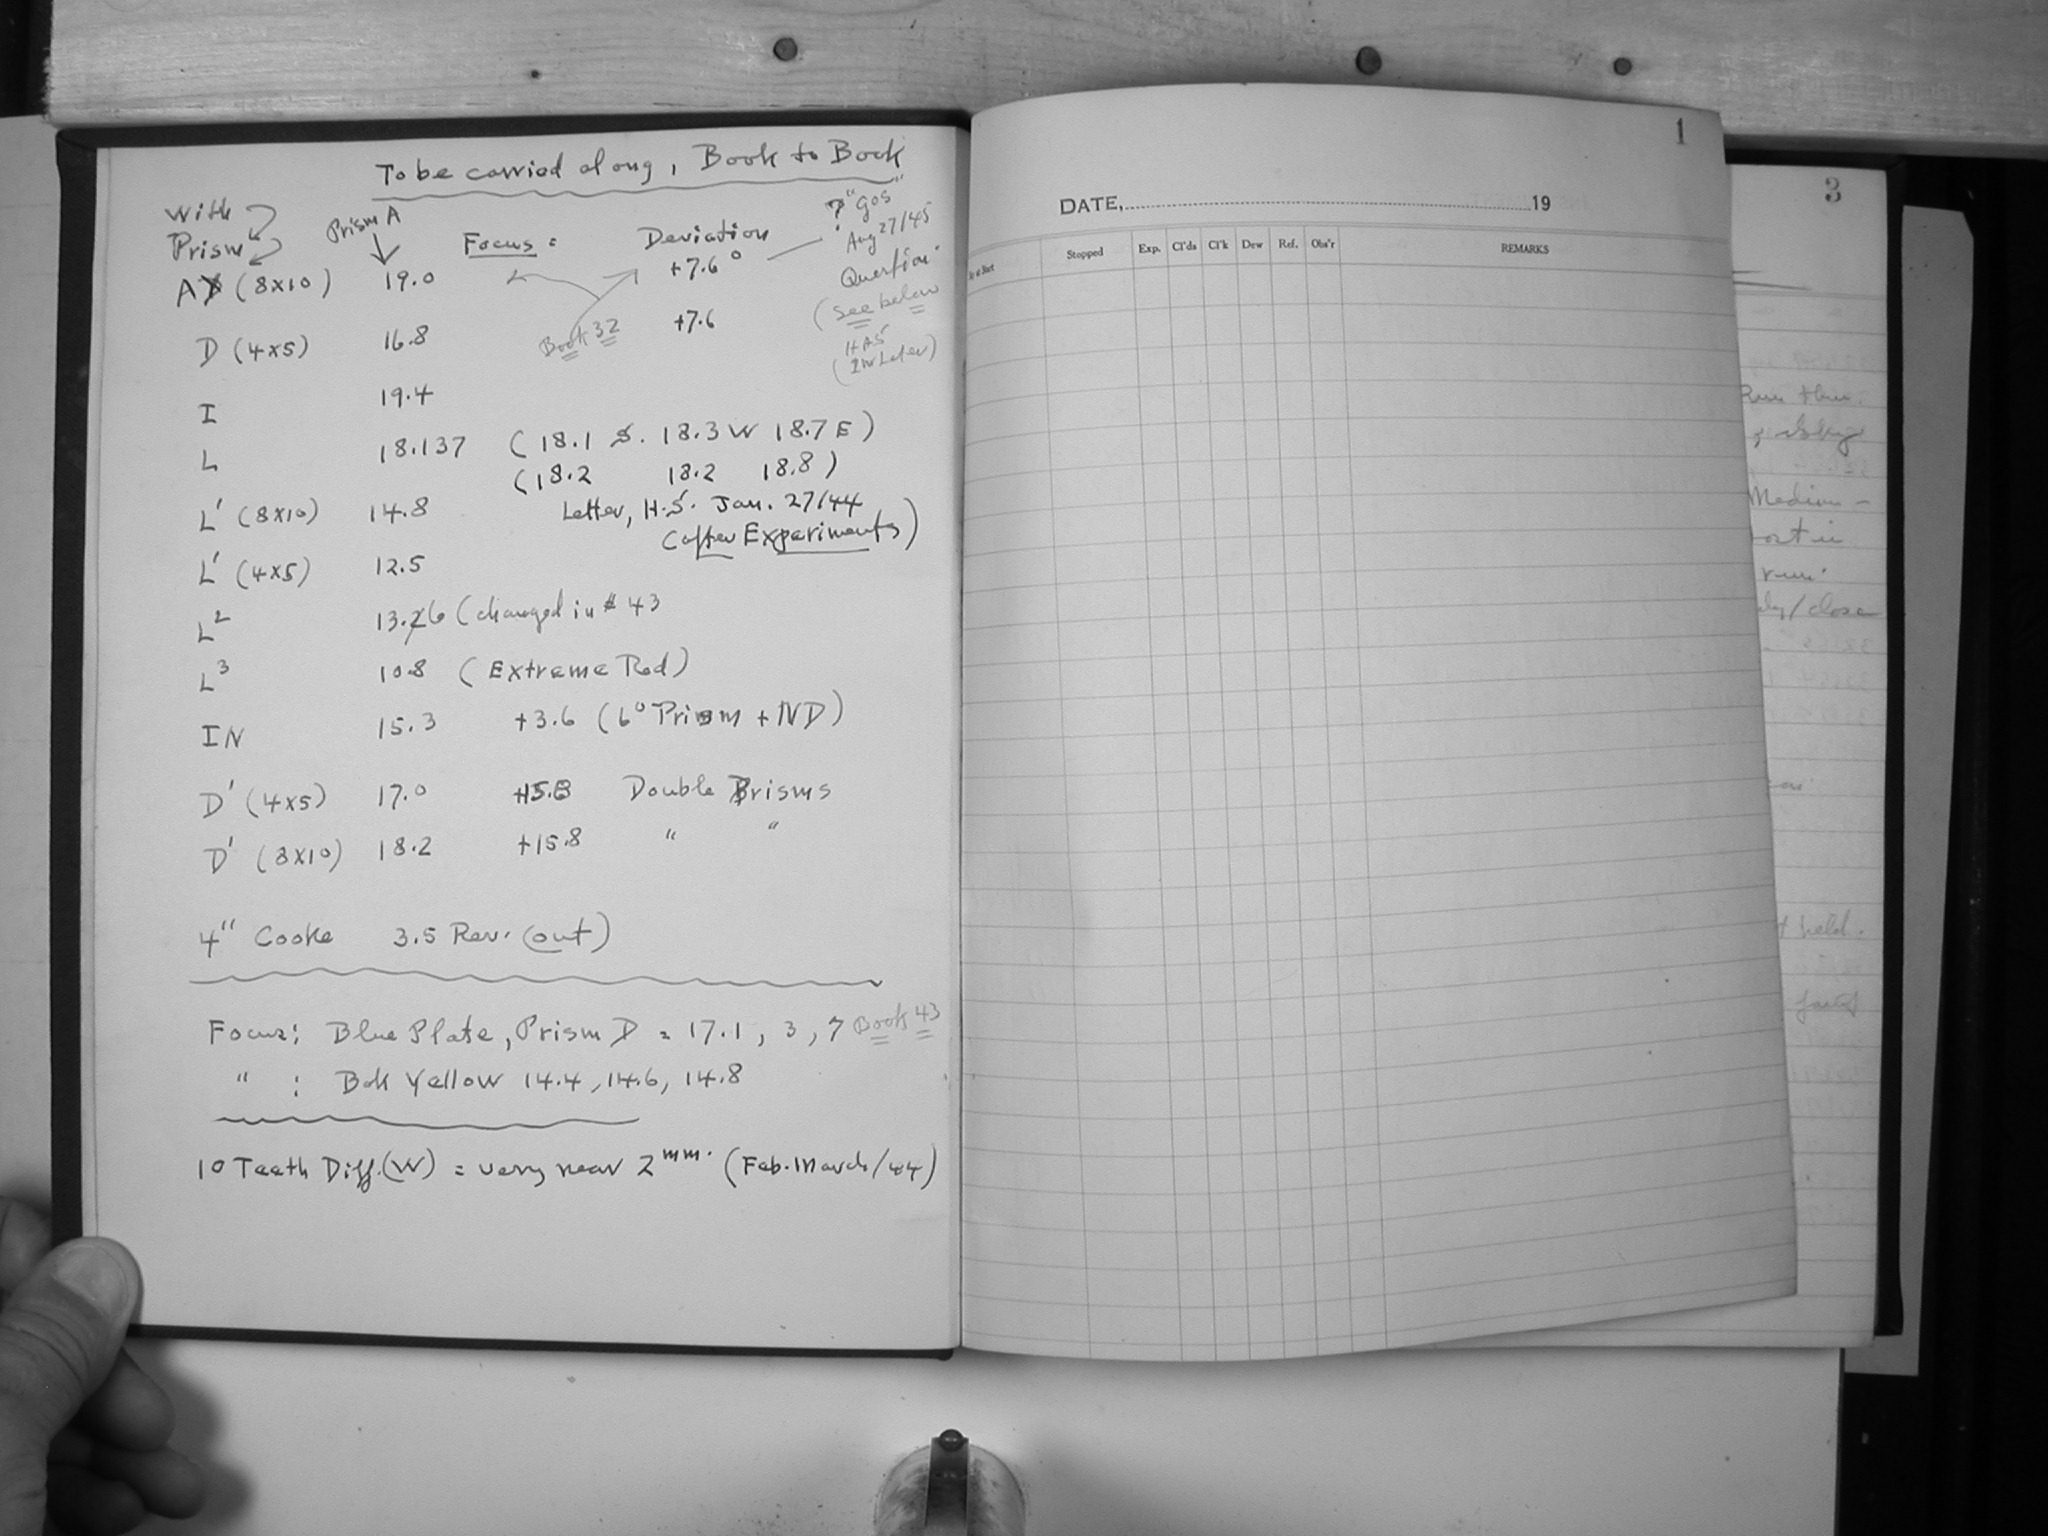 To be carried along, Book to Book
With
Prism
Prism A
Focus:
Deviation
? "90s"
Aug 27/45
Question
(See below
HAS
A (8x10) 19.0 +7.6°
D (4x5) 16.8 Book 32 +7.6
I 19.4
L 18.137 (18.1 S. 18.3 W 18.7 E)
(18.2 18.2 18.8)
L' (8x10) 14.8 Letter, H.S. Jan. 27/44
(after Experiments)
L' (4x5) 12.5
L² 13.26 (changed in # 43
L³ 10.8 (Extreme Red)
IN 15.3 +3.6 (6° Prism + ND)
D' (4x5) 17.0 +15.8 Double Prisms
D' (8x10) 18.2 +15.8 " "
4" Cooke 3.5 Rev. (out)
Focus: Blue Plate, Prism D = 17.1, 3, 7 Book 43
" : Yellow 14.4, 14.6, 14.8
10 Teeth Diff. (W) = very near 2 mm. (Feb. March/44)
1
DATE, 19
Stopped Exp. Cl'ds Cl'k Dew Ref. Obs'r REMARKS
3
Medium -
/ closer
held.